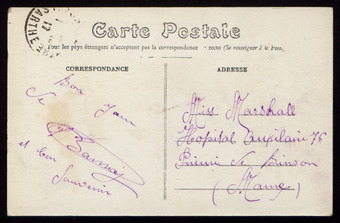 SARTHE
Carte Postale
Tous les pays étrangers n'acceptent pas la correspondance au recto (Se renseigner à la Poste)
CORRESPONDANCE
ADRESSE
Bon jour
de
et bon
Souvenir
Miss Marshall
Hopital Auxilaire 76
Prieuré de Binson
(Marne)